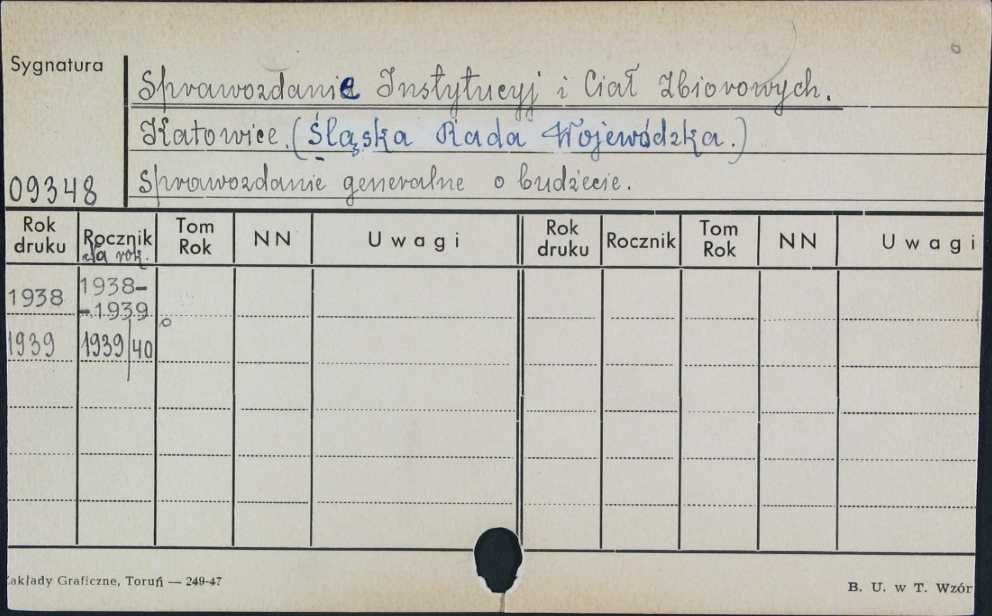 Sygnatura
Sprawozdanie Instytucyj i Ciał Zbiorowych.
Katowice. (Śląska Rada Wojewódzka.)
09348 Sprawozdanie generalne o budżecie.
Rok druku Rocznik dla rok. Tom Rok NN Uwagi Rok druku Rocznik Tom Rok NN Uwagi
1938 1938-
-1939
1939 1939/40
Zakłady Graficzne, Toruń — 249-47 B. U. w T. Wzór